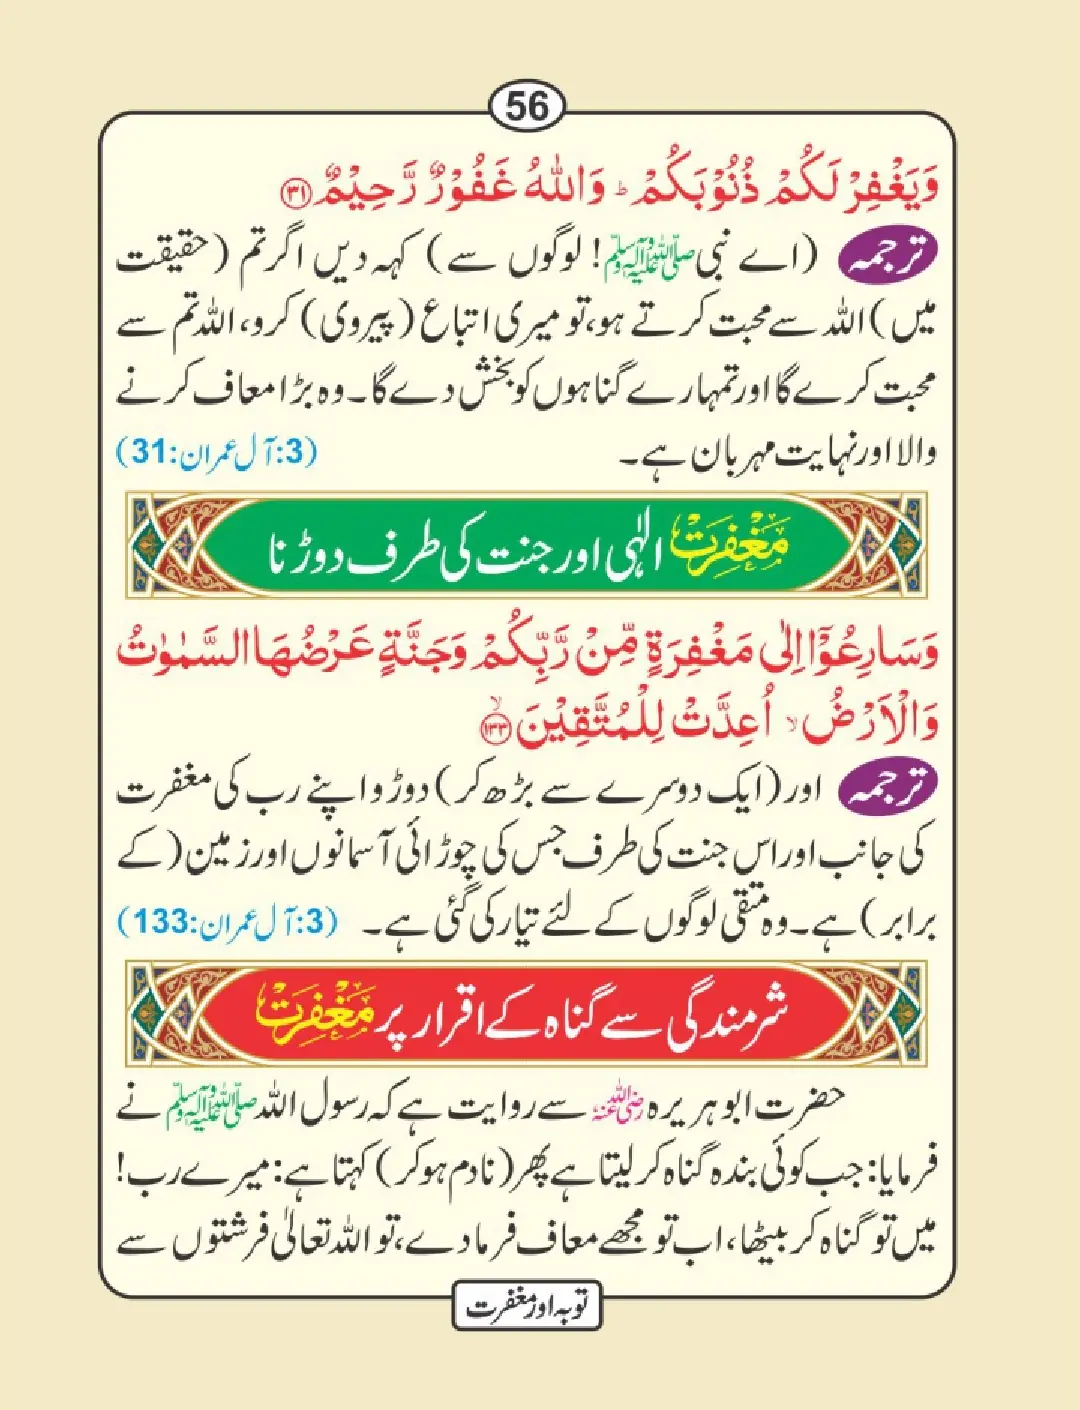 56
وَيَغْفِرْ لَكُمْ ذُنُوْبَكُمْ ؕ وَاللّٰهُ غَفُوْرٌ رَّحِيْمٌ ﴿۳۱﴾
ترجمہ (اے نبی ﷺ! لوگوں سے) کہہ دیں اگر تم (حقیقت
میں) اللہ سے محبت کرتے ہو، تو میری اتباع (پیروی) کرو، اللہ تم سے
محبت کرے گا اور تمہارے گناہوں کو بخش دے گا۔ وہ بڑا معاف کرنے
والا اور نہایت مہربان ہے۔ (3:آل عمران:31)
مَغْفِرَتْ الٰہی اور جنت کی طرف دوڑنا
وَسَارِعُوْۤا اِلٰى مَغْفِرَةٍ مِّنْ رَّبِّكُمْ وَجَنَّةٍ عَرْضُهَا السَّمٰوٰتُ
وَالْاَرْضُ ۙ اُعِدَّتْ لِلْمُتَّقِيْنَ ﴿۱۳۳﴾ ۙ
ترجمہ اور (ایک دوسرے سے بڑھ کر) دوڑو اپنے رب کی مغفرت
کی جانب اور اس جنت کی طرف جس کی چوڑائی آسمانوں اور زمین (کے
برابر) ہے۔ وہ متقی لوگوں کے لئے تیار کی گئی ہے۔ (3:آل عمران:133)
شرمندگی سے گناہ کے اقرار پر مَغْفِرَتْ
حضرت ابو ہریرہ رضی اللہ عنہ سے روایت ہے کہ رسول اللہ ﷺ نے
فرمایا: جب کوئی بندہ گناہ کر لیتا ہے پھر (نادم ہو کر) کہتا ہے: میرے رب!
میں تو گناہ کر بیٹھا، اب تو مجھے معاف فرما دے، تو اللہ تعالیٰ فرشتوں سے
توبہ اور مغفرت